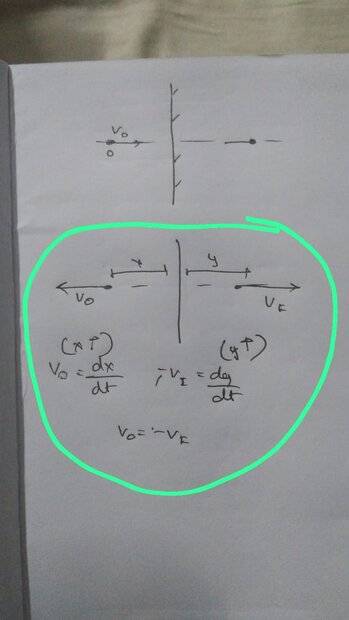 V₀
O
x y
V₀ V_I
(x↑) (y↑)
V₀ = dx/dt ; -V_I = dy/dt
V₀ = -V_I